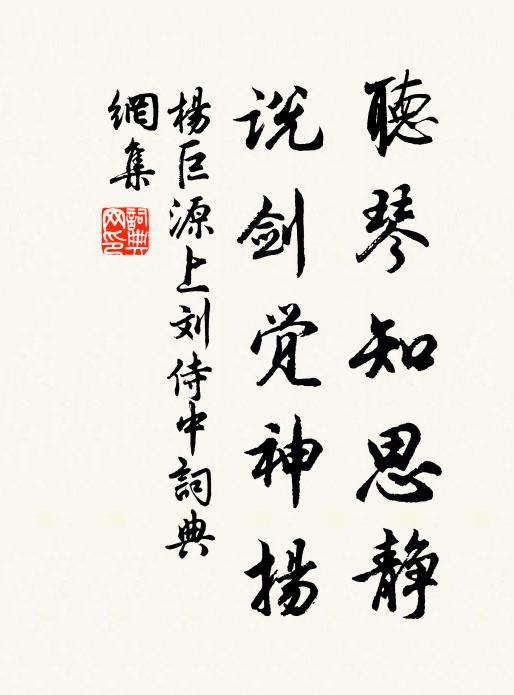 聽琴知思静
说剑觉神揚
楊巨源上刘侍中詞典
網集
詞典网印